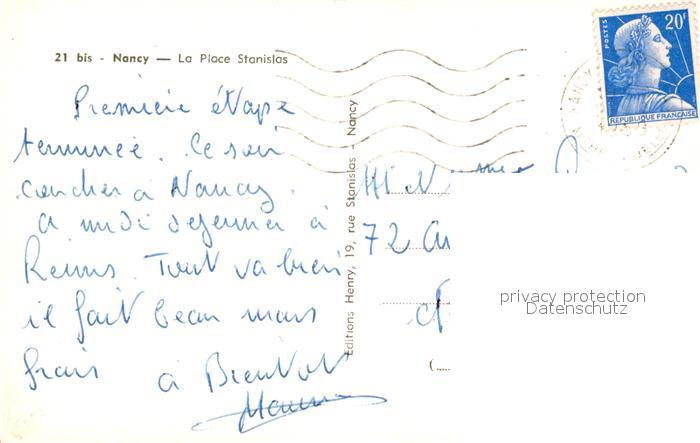 21 bis - Nancy — La Place Stanislas
Première étape
terminée. Ce soir
coucher à Nancy.
A midi dejeuner à
Reims. Tout va bien
il fait beau mais
frais à Bientot
Editions Henry, 19, rue Stanislas - Nancy
72
POSTES
20F
REPUBLIQUE FRANÇAISE
privacy protection
Datenschutz